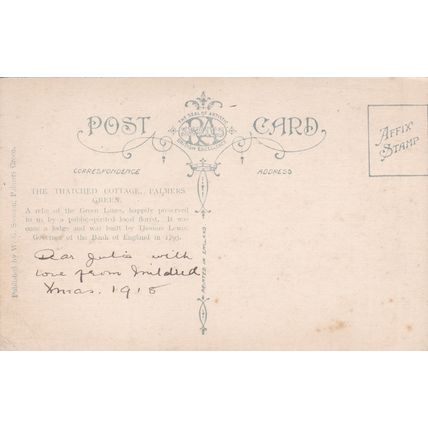 POST CARD
THE SEAL OF ARTISTIC
BRITISH EXCELLENCE
RA
AFFIX
STAMP
CORRESPONDENCE
ADDRESS
THE THATCHED COTTAGE, PALMERS
GREEN.
A relic of the Green Lanes, happily preserved
to us by a public-spirited local florist. It was
once a lodge and was built by Thomas Lewis,
Governor of the Bank of England in 1793.
Dear Julia with
love from Mildred
Xmas. 1915
PRINTED IN ENGLAND
Published by W. Palmers Green.